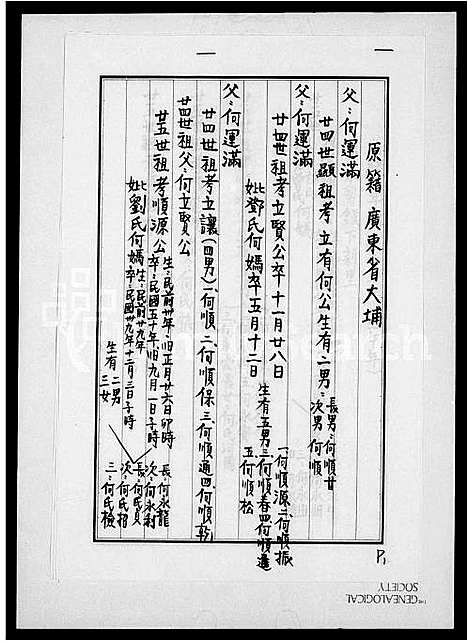 原籍 廣東省大埔
父:何運滿
廿四世顯祖考 立有何公生有二男:
長男:何順廿
次男 何順
父:何運滿
廿四世祖考立賢公卒十一月廿八日
妣鄧氏何媽卒五月十二日
生有五男
一、何順源 二、何順振
三何順春 四何順進
五何順松
父:何運滿
廿四世祖考立讓(四男)一、何順 二、何順保 三、何順通 四、何順乾
廿四世祖父:何立賢公
廿五世祖考順源公
生:民前卅年·旧正月廿六日卯時
卒:民國五十年·旧九月一日子時
妣劉氏何媽
生:民前廿九年
卒:民國卅九年十二月三日子時
生有 二男
三女
長:何永龍
次:何永利
長:何氏貝
次:何氏招
三:何氏檢
P1
THE GENEALOGICAL
SOCIETY